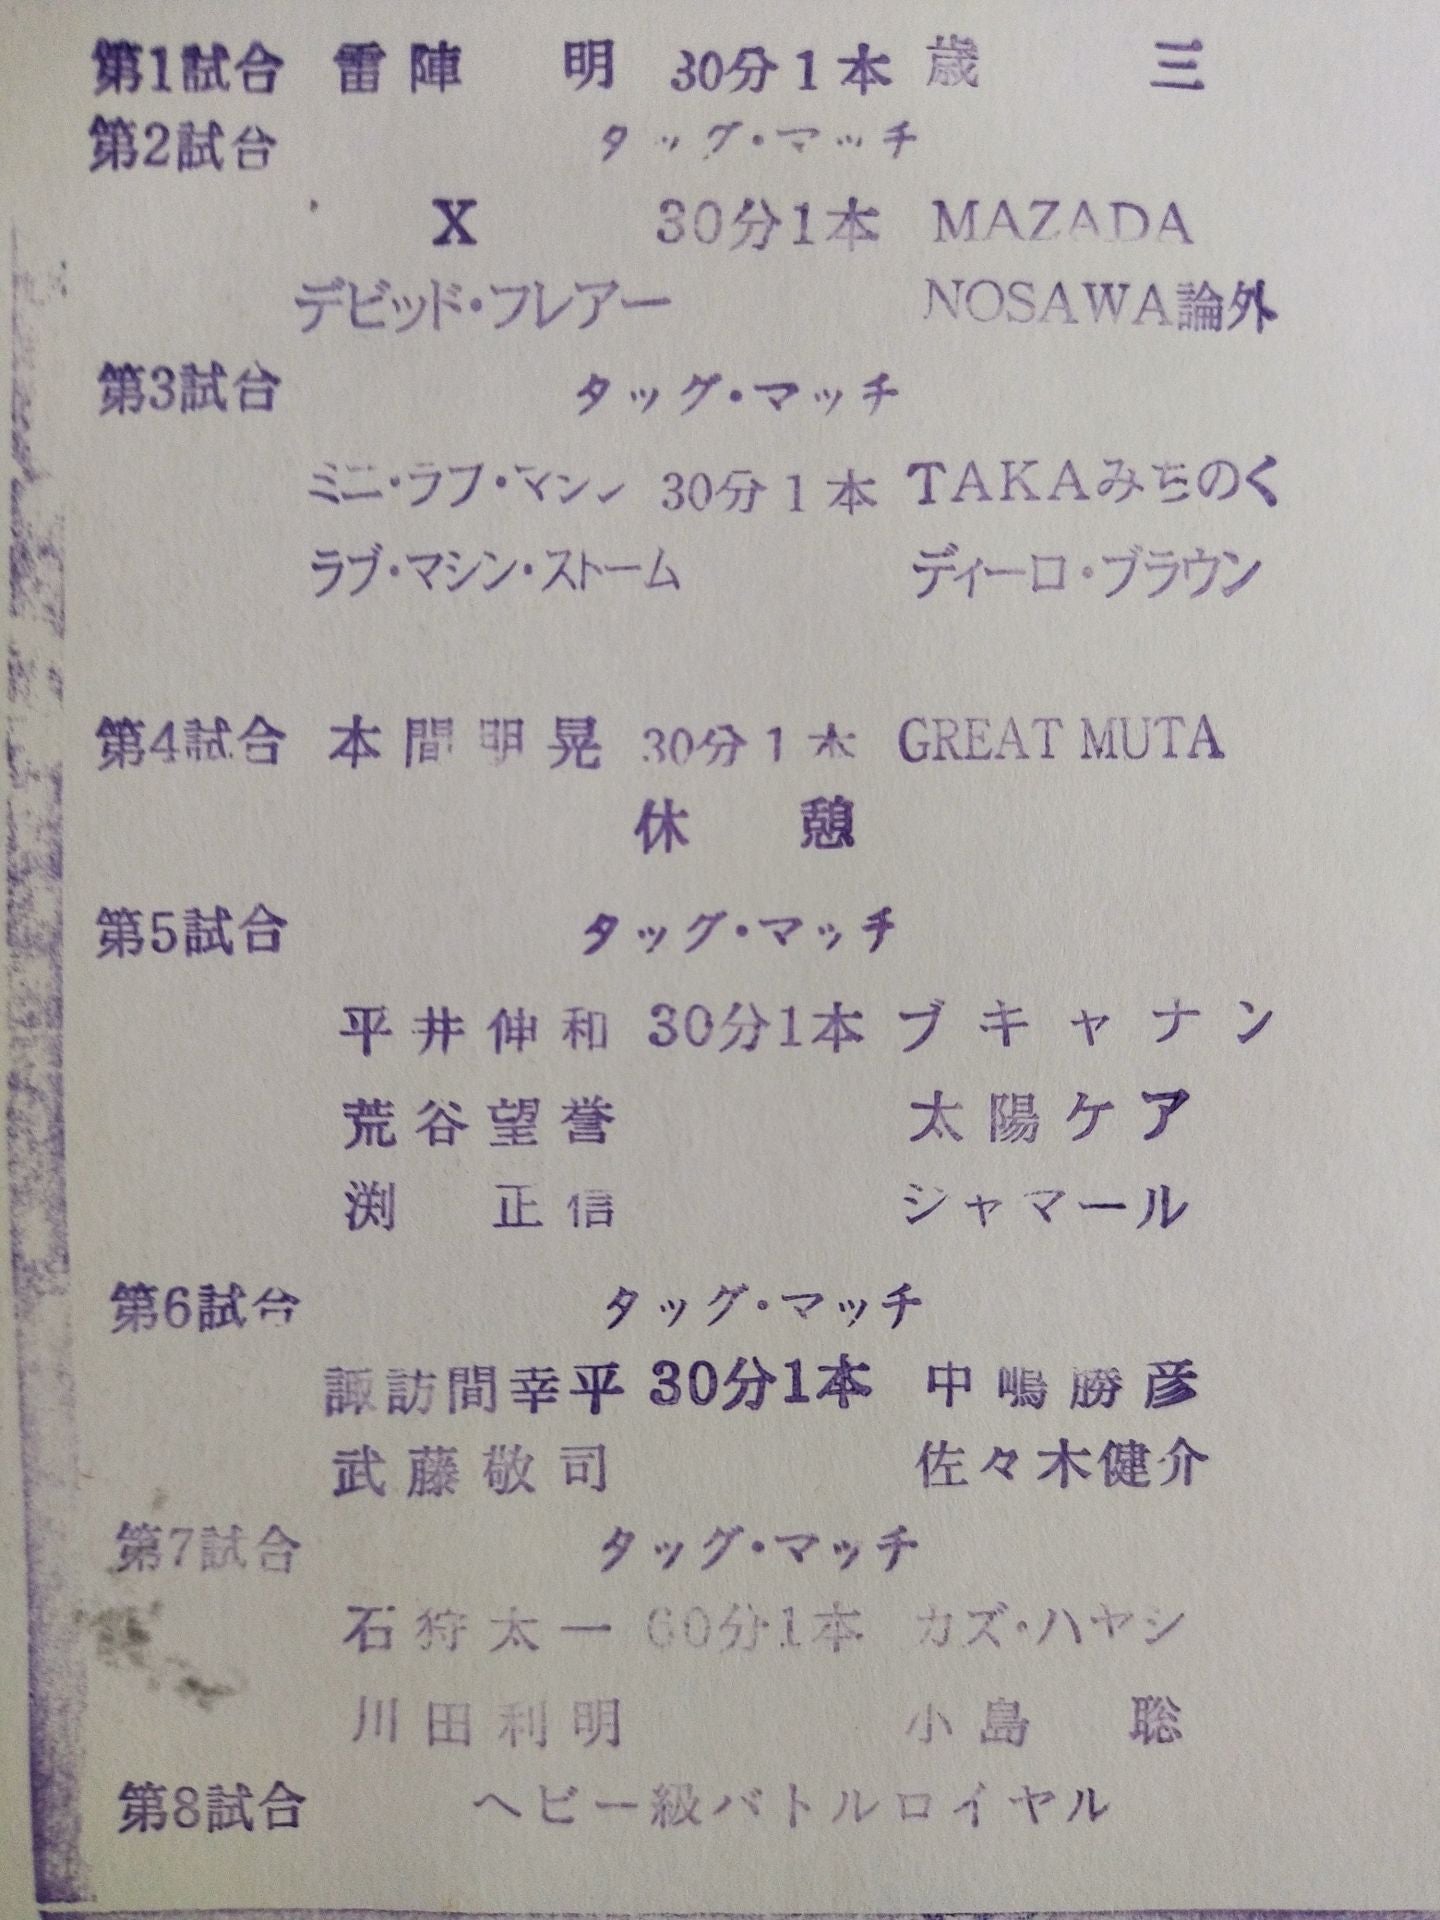 第1試合 雷陣 明 30分1本 歳 三
第2試合 タッグ・マッチ
X 30分1本 MAZADA
デビッド・フレアー NOSAWA論外
第3試合 タッグ・マッチ
ミニ・ラブ・マシン 30分1本 TAKAみちのく
ラブ・マシン・ストーム ディーロ・ブラウン
第4試合 本間朋晃 30分1本 GREAT MUTA
休 憩
第5試合 タッグ・マッチ
平井伸和 30分1本 ブキャナン
荒谷望誉 太陽ケア
渕 正信 ジャマール
第6試合 タッグ・マッチ
諏訪間幸平 30分1本 中嶋勝彦
武藤敬司 佐々木健介
第7試合 タッグ・マッチ
石狩太一 60分1本 カズ・ハヤシ
川田利明 小島 聡
第8試合 ヘビー級バトルロイヤル